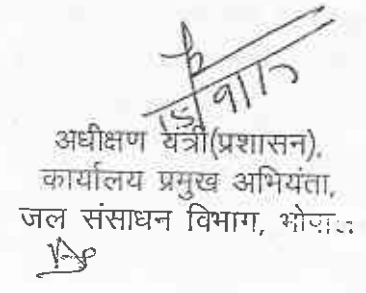 15/9/17
अधीक्षण यंत्री(प्रशासन),
कार्यालय प्रमुख अभियंता,
जल संसाधन विभाग, भोपाल